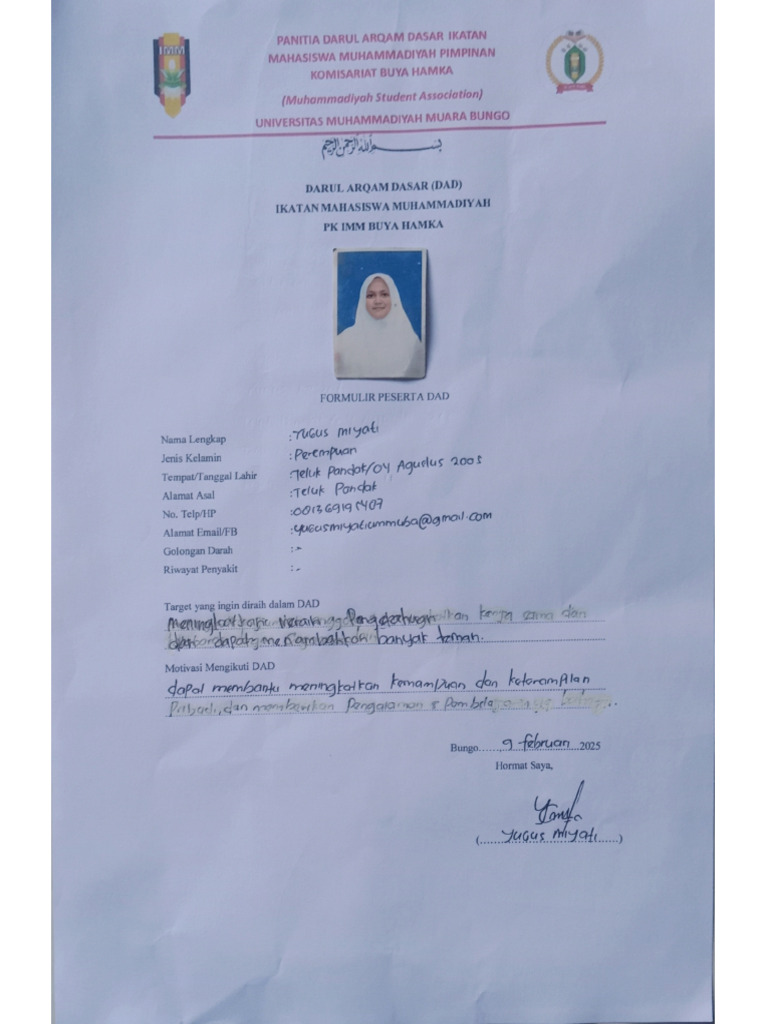 PANITIA DARUL ARQAM DASAR IKATAN
MAHASISWA MUHAMMADIYAH PIMPINAN
KOMISARIAT BUYA HAMKA
(Muhammadiyah Student Association)
UNIVERSITAS MUHAMMADIYAH MUARA BUNGO
بسم الله الرحمن الرحيم
DARUL ARQAM DASAR (DAD)
IKATAN MAHASISWA MUHAMMADIYAH
PK IMM BUYA HAMKA
FORMULIR PESERTA DAD
Nama Lengkap : Yugus Miyati
Jenis Kelamin : Perempuan
Tempat/Tanggal Lahir : Teluk Pandak/04 Agustus 2005
Alamat Asal : Teluk Pandak
No. Telp/HP
Alamat Email/FB : yugusmiyatiummuba@gmail.com
Golongan Darah : -
Riwayat Penyakit : -
Target yang ingin diraih dalam DAD
Meningkatkan Pengetahuan
dan dapat menambahkan banyak teman.
Motivasi Mengikuti DAD
dapat membantu meningkatkan kemampuan dan keterampilan
Pribadi, dan memberikan Pengalaman
Bungo......, 9 Februari 2025
Hormat Saya,
(......Yugus Miyati......)